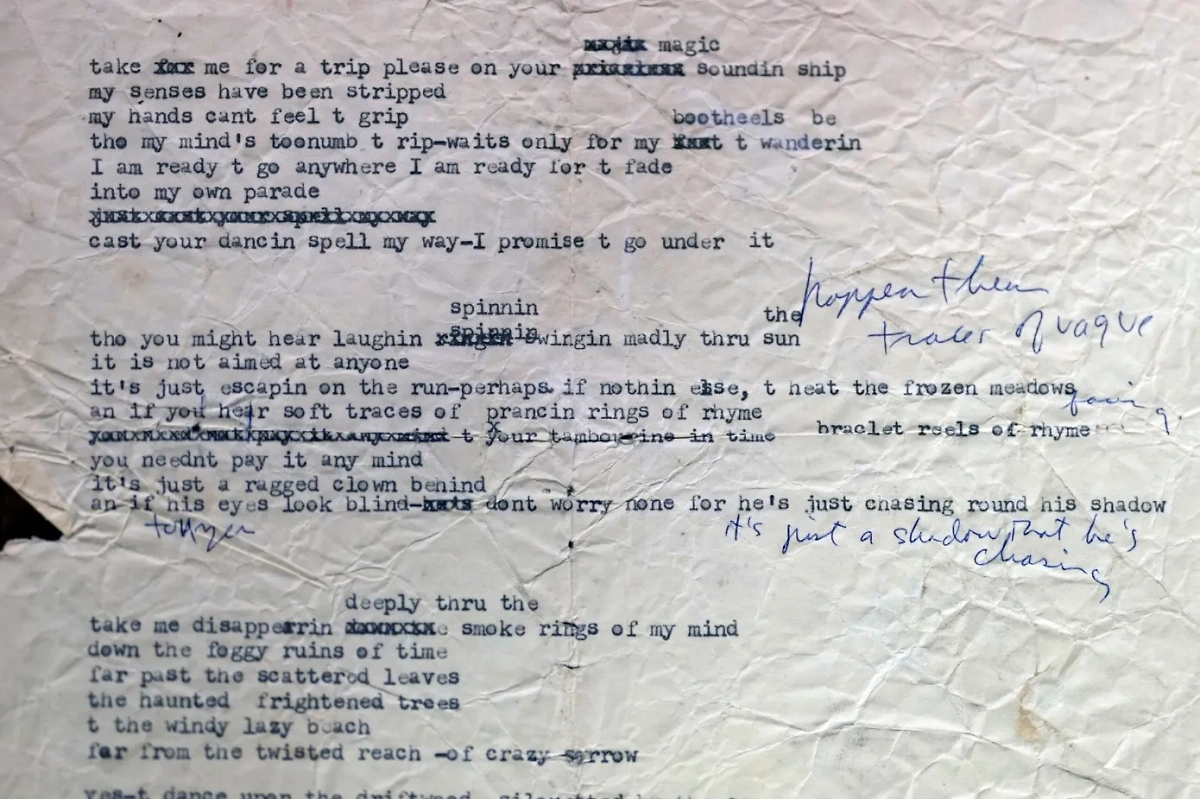 magic
take me for a trip please on your soundin ship
my senses have been stripped
my hands cant feel t grip
bootheels be
tho my mind's toonumb t rip-waits only for my t wanderin
I am ready t go anywhere I am ready for t fade
into my own parade
just cast your spell my way
cast your dancin spell my way-I promise t go under it
spinnin
the
tho you might hear laughin spinnin swingin madly thru sun
traces of vague
it is not aimed at anyone
it's just escapin on the run-perhaps if nothin else, t heat the frozen meadows
an if you hear soft traces of prancin rings of rhyme
t your tambourine in time braclet reels of rhyme
you neednt pay it any mind
it's just a ragged clown behind
an if his eyes look blind- dont worry none for he's just chasing round his shadow
it's just a shadow that he's
chasing
deeply thru the
take me disapperrin smoke rings of my mind
down the foggy ruins of time
far past the scattered leaves
the haunted frightened trees
t the windy lazy beach
far from the twisted reach -of crazy sorrow
yes-t dance upon the driftwood